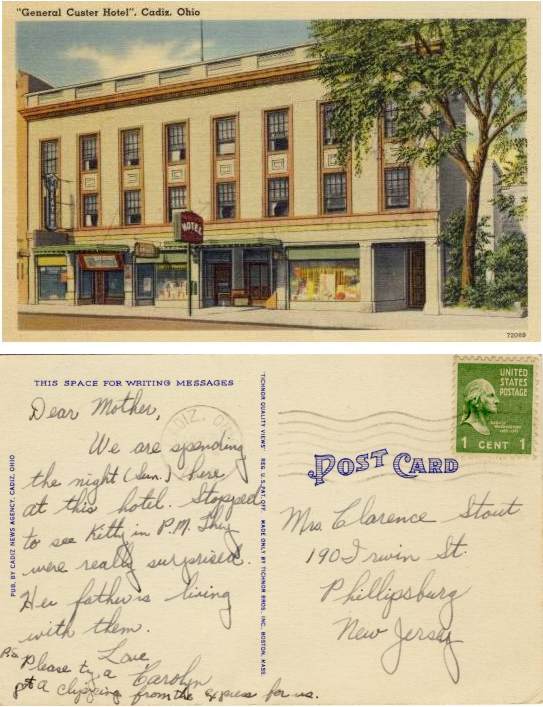 "General Custer Hotel", Cadiz, Ohio
HOTEL
72089
THIS SPACE FOR WRITING MESSAGES
Dear Mother,
We are spending
the night (Sun.) here
at this hotel. Stopped
to see Kitty in P.M. They
were really surprised.
Her father is living
with them.
Love,
Carolyn
P.S.
Please try a
get a clipping from the Express for us.
PUB. BY CADIZ NEWS AGENCY, CADIZ, OHIO
TICHNOR QUALITY VIEWS REG. U. S. PAT. OFF. MADE ONLY BY TICHNOR BROS., INC., BOSTON, MASS.
CADIZ, OHIO
UNITED
STATES
POSTAGE
1 CENT 1
POST CARD
Mrs. Clarence Stout
190 Irwin St.
Phillipsburg
New Jersey